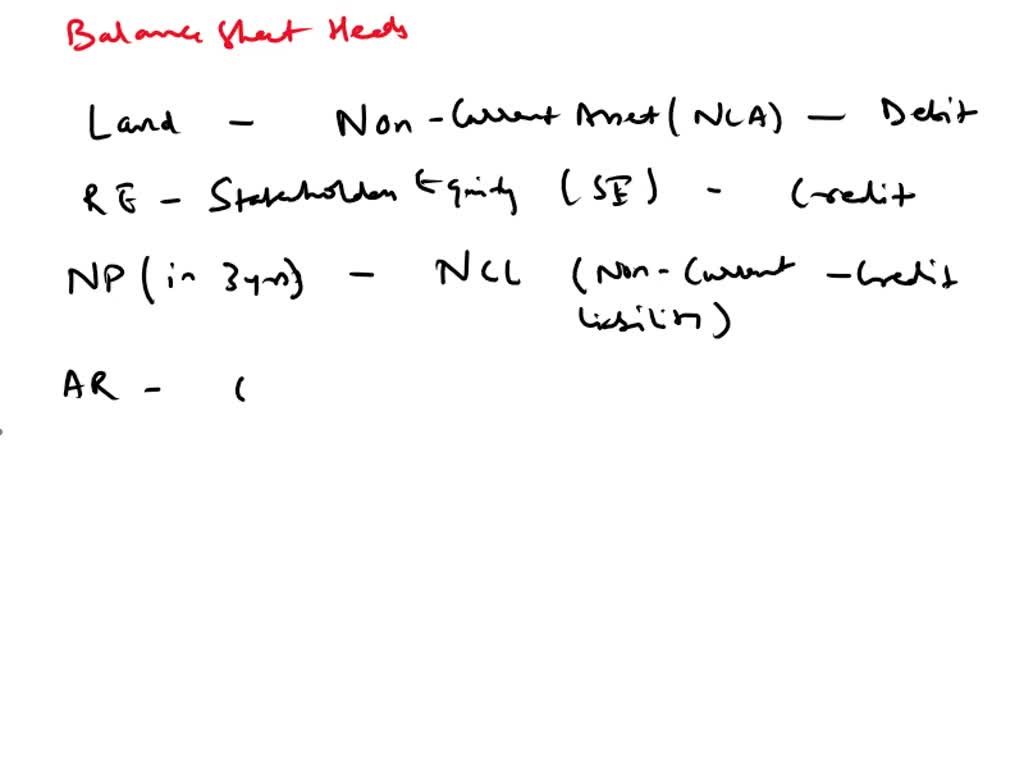 Balance Sheet Heads
Land - Non-Current Asset (NCA) - Debit
RE - Stakeholder Equity (SE) - Credit
NP (in 3yrs) - NCL (Non-Current - Credit
liability)
AR - (